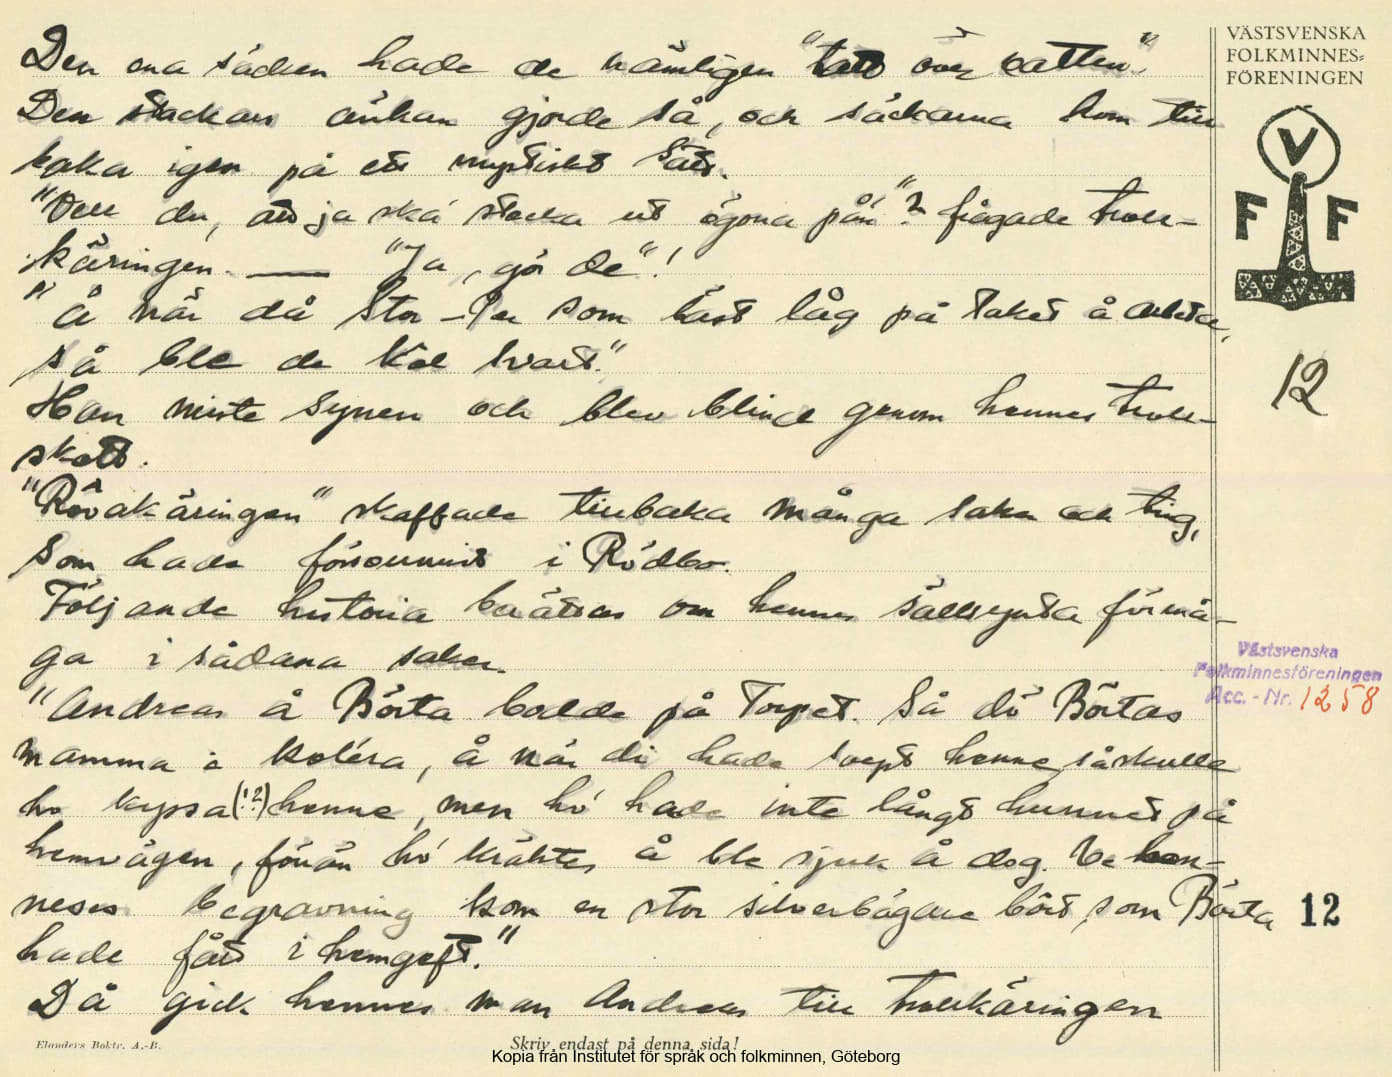 Den ena säcken hade de nämligen "tatt över vatten".
Den stackars änkan gjorde så, och säckarna kom till
baka igen på ett mystiskt sätt.
"Vell du, att ja ska stecka ut ögona på'n"? frågade troll-
käringen. — "Ja, gör de"!
"Å når då Stor-Per som bäst låg på taket å arbeta,
så ble de kol svart."
Han miste synen och blev blind genom hennes troll-
skott.
"Rövakäringen" skaffade tillbaka många saker och ting,
som hade försvunnit i Rödbo.
Följande historia berättas om hennes sällsynta förmå-
ga i sådana saker.
"Andreas å Börta bodde på Torpet. Så dö Börtas
mamma i koléra, å når di hade svept henne, så skulle
ho kyssa (!?) henne, men ho hade inte långt hunnet på
hemvägen, förrän ho kräktes å ble sjuk å dog. Ve hen-
neses begravning kom en stor silverbägare bört, som Börta
hade fått i hemgeft."
Då gick hennes man Andreas till trollkäringen
VÄSTSVENSKA
FOLKMINNES=
FÖRENINGEN
V
F F
12
Västsvenska
Folkminnesföreningen
Acc. - Nr. 1258
12
Elanders Boktr. A.-B.
Skriv endast på denna sida!
Kopia från Institutet för språk och folkminnen, Göteborg